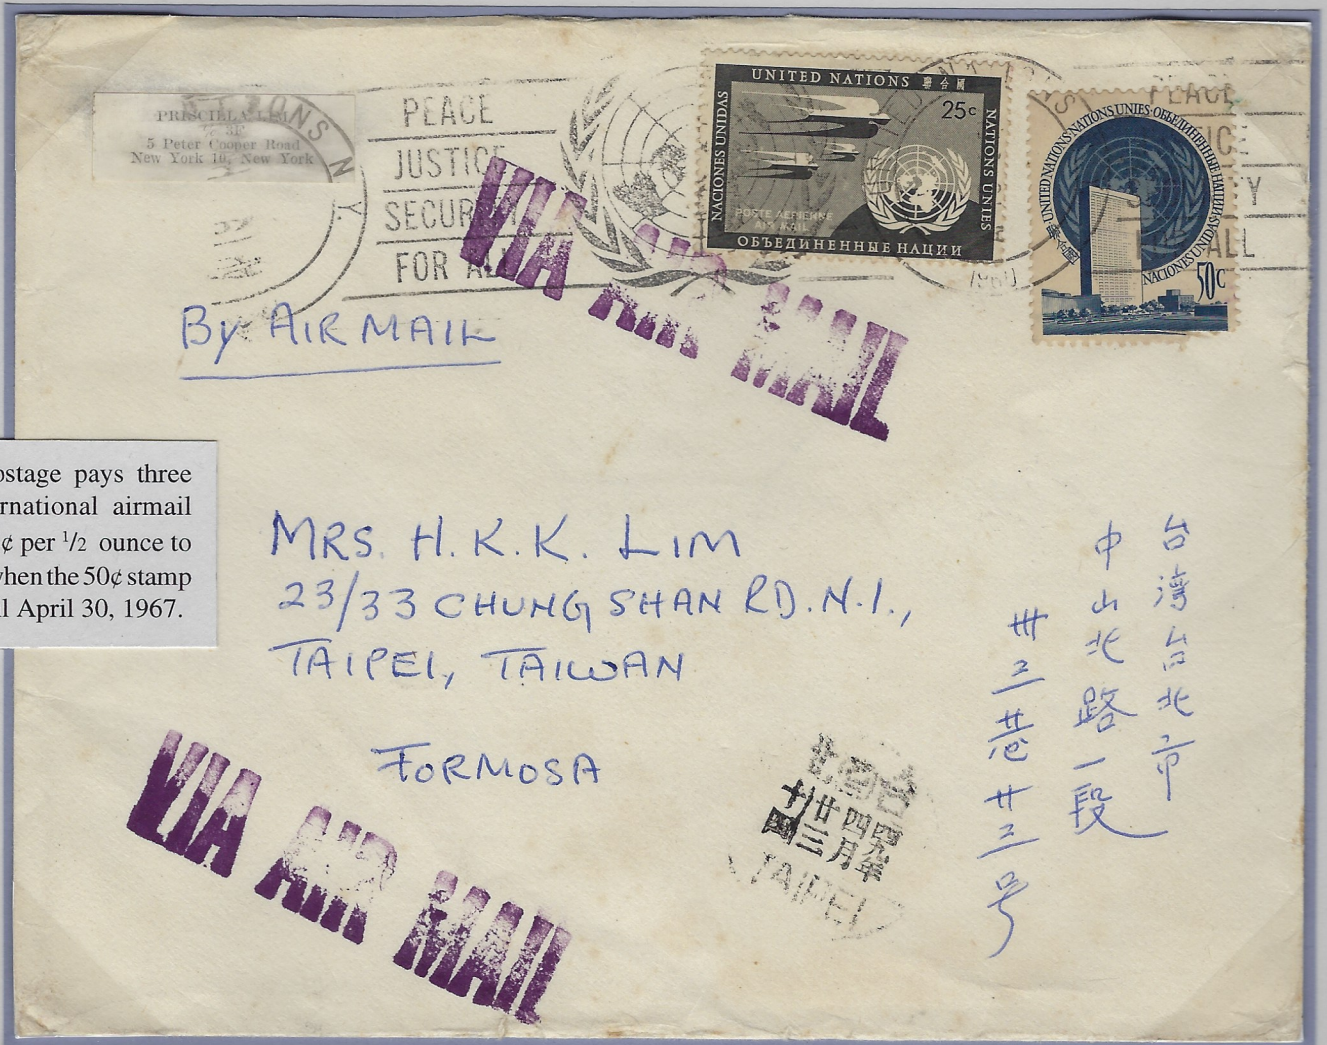 PRISCILLA LIM
3F
5 Peter Cooper Road
New York 10, New York
N.Y.
PEACE
JUSTICE
SECUR
FOR A
UNITED NATIONS 聯合國
25c
NACIONES UNIDAS
NATIONS UNIES
POSTE AERIENNE
AIR MAIL
ОБЪЕДИНЕННЫЕ НАЦИИ
1960
PEACE
ICE
TY
ALL
UNITED NATIONS·NATIONS UNIES·ОБЪЕДИНЕННЫЕ НАЦИИ
NACIONES UNIDAS
50c
VIA AIR MAIL
BY AIR MAIL
ostage pays three
rnational airmail
¢ per 1/2 ounce to
when the 50¢ stamp
l April 30, 1967.
MRS. H. K. K. LIM
23/33 CHUNG SHAN RD. N.1.,
TAIPEI, TAIWAN
FORMOSA
台湾台北市
中山北路一段
卅三巷廿三号
VIA AIR MAIL
四九年
四月
廿三
十四
TAIPEI